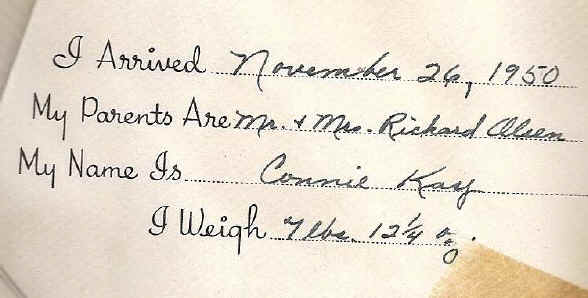 I Arrived November 26, 1950
My Parents Are Mr. + Mrs. Richard Olsen
My Name Is Connie Kay
I Weigh 7 lbs. 12 1/4 oz.